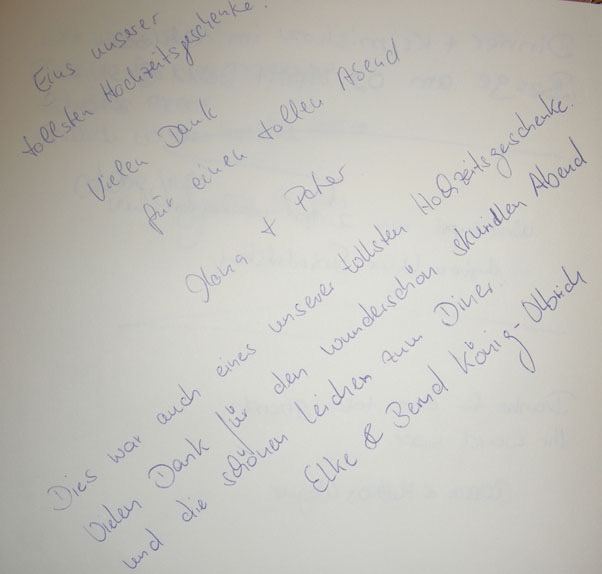 Eins unserer
tollsten Hochzeitsgeschenke.
Vielen Dank
für einen tollen Abend
Ilona + Peter
Dies war auch eines unserer tollsten Hochzeitsgeschenke.
Vielen Dank für den wunderschön skurrillen Abend
und die schönen Leichen zum Diner.
Elke & Bernd König-Olbrich